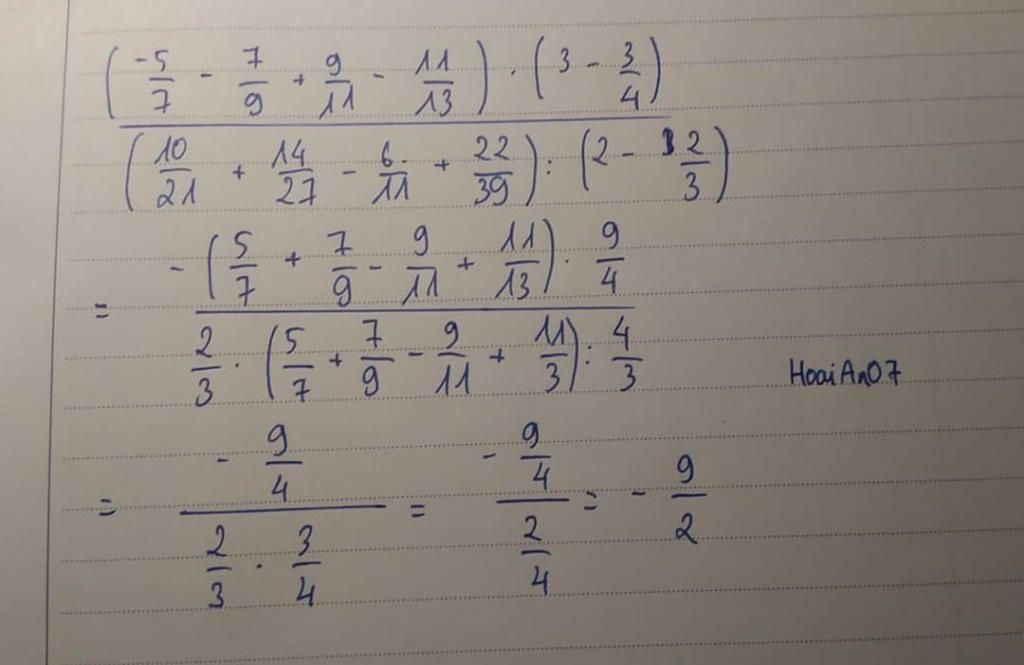 (-5/7 - 7/9 + 9/11 - 11/13) . (3 - 3/4)
(10/21 + 14/27 - 6/11 + 22/39) : (2 - 2/3)
-(5/7 + 7/9 - 9/11 + 11/13) . 9/4
=
2/3 . (5/7 + 7/9 - 9/11 + 11/3) : 4/3
HoaiAn07
= (- 9/4)/(2/3 . 3/4) = (- 9/4)/(2/4) = - 9/2